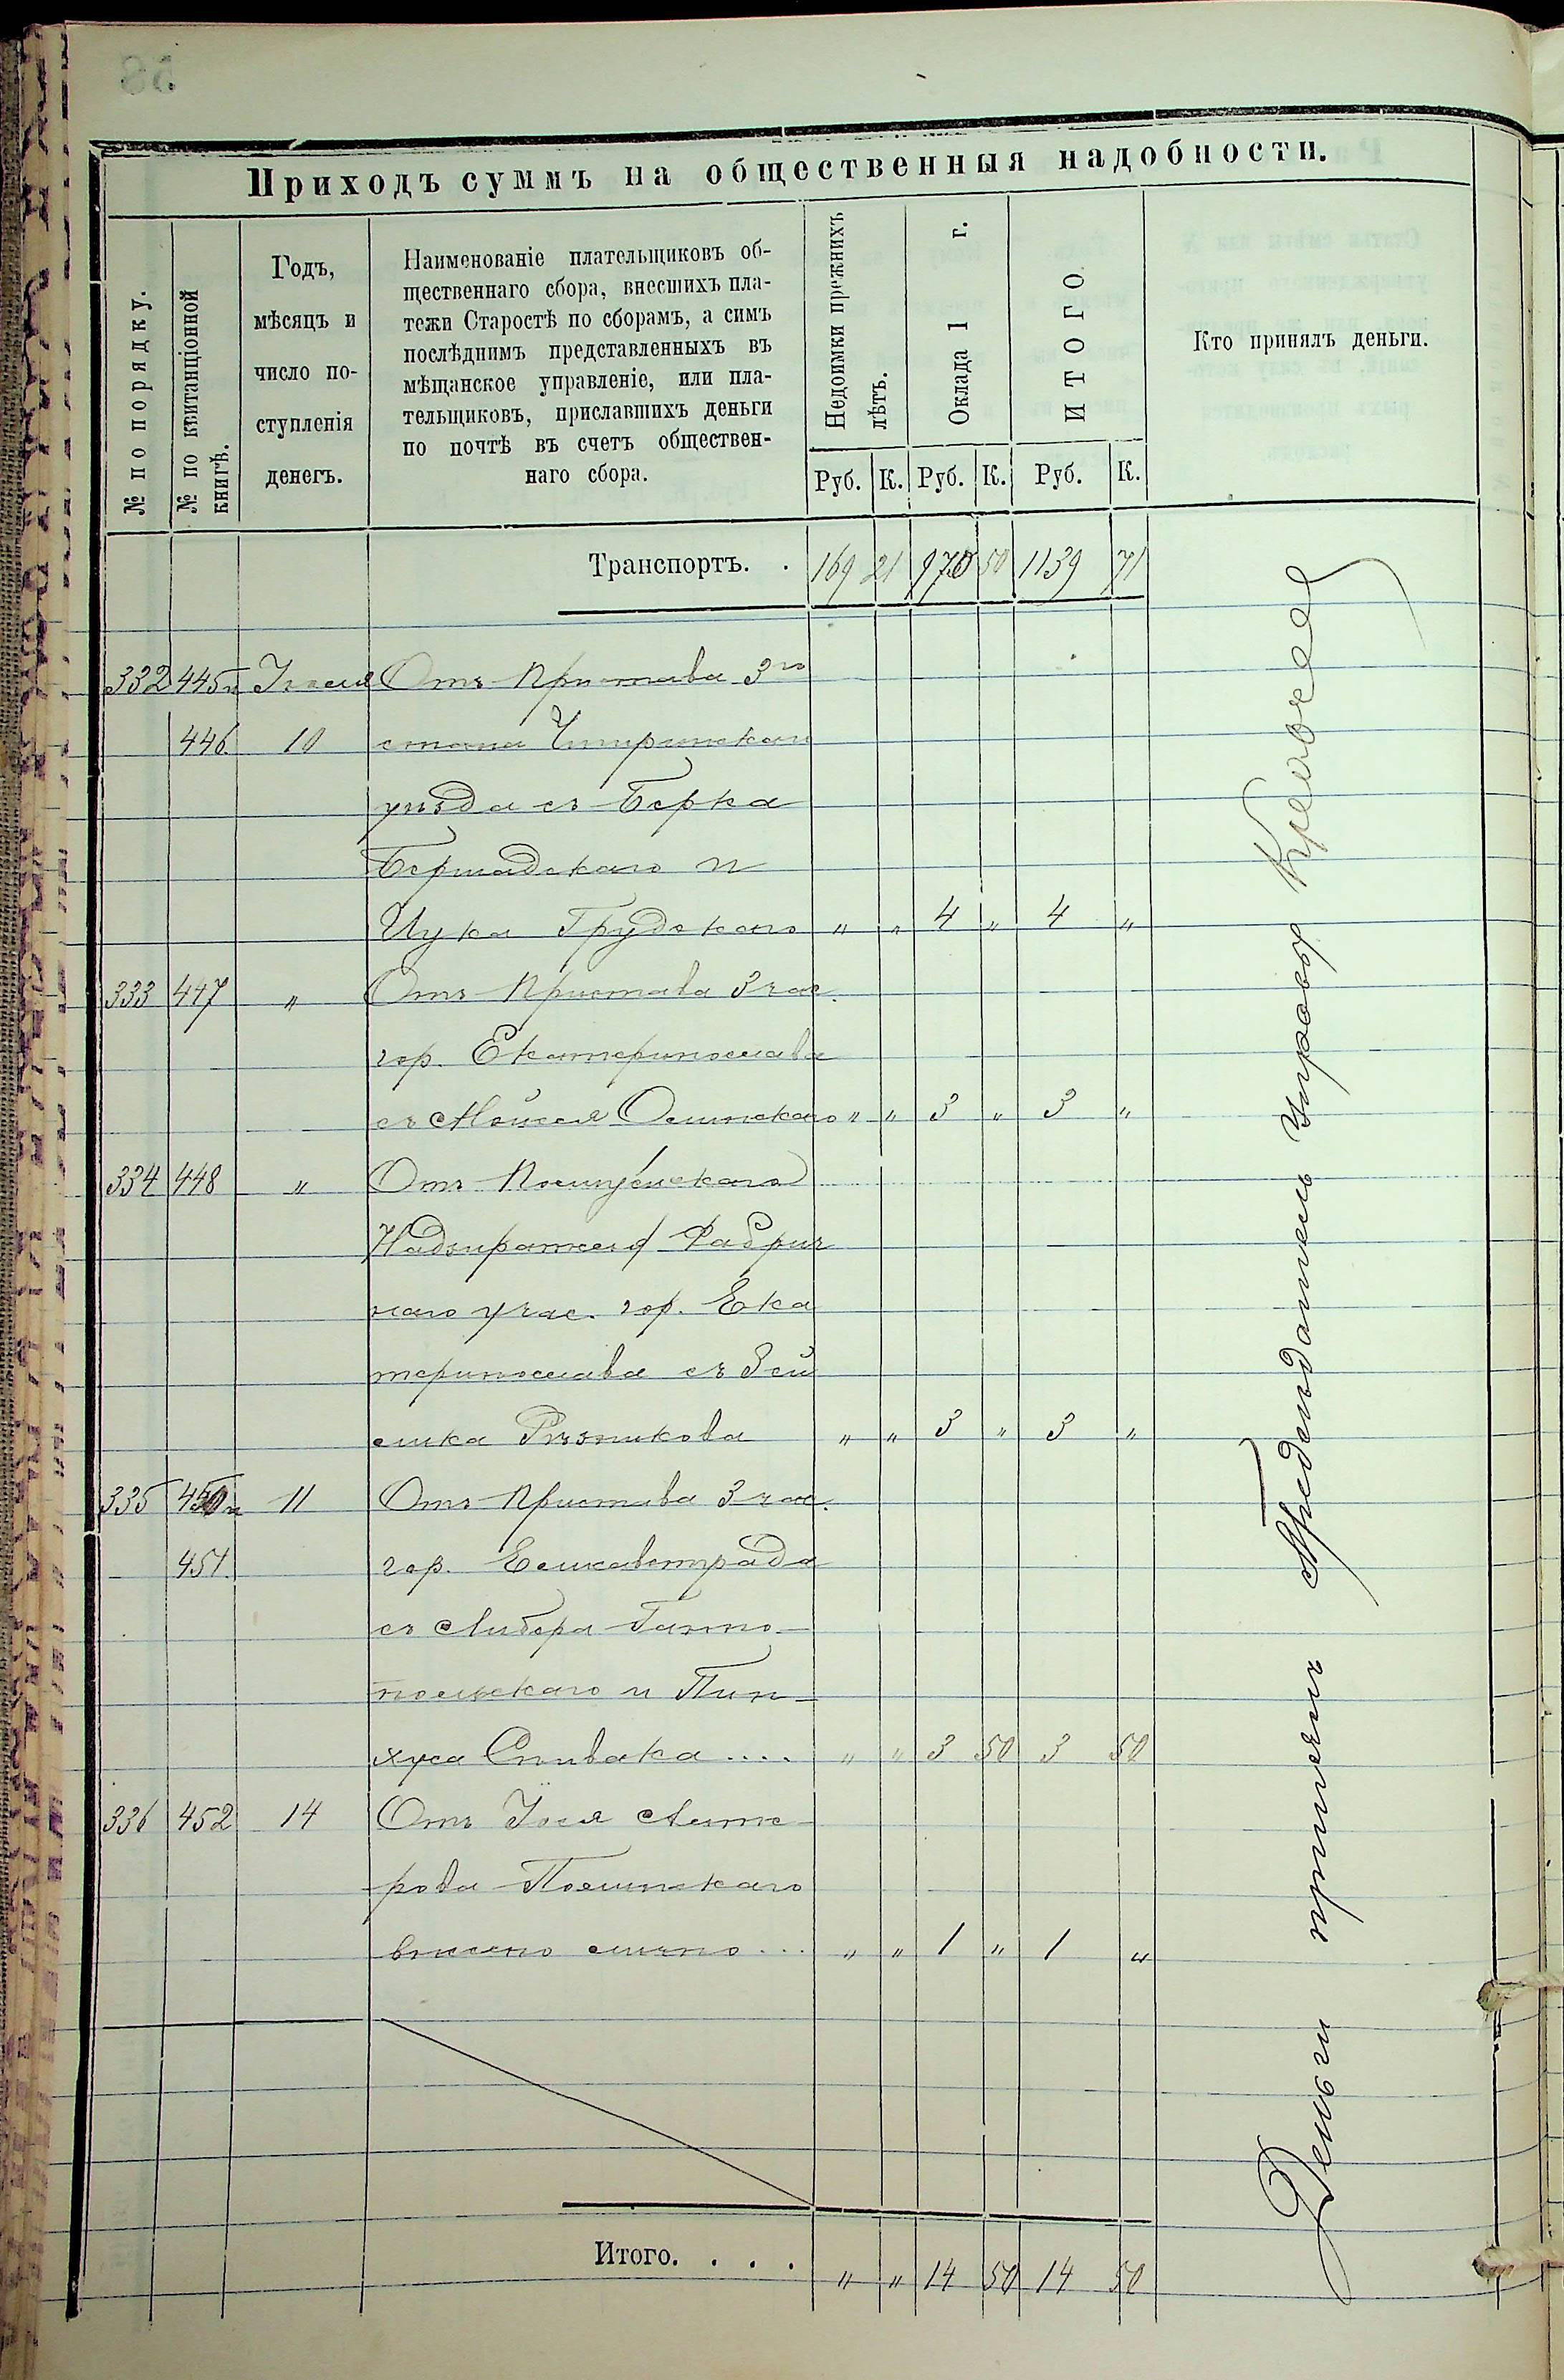 Приходъ суммъ на общественныя надобности.
№ по порядку.
№ по квитанціонной книгѣ.
Годъ,
мѣсяцъ и
число по-
ступленія
денегъ.
Наименованіе плательщиковъ об-
щественнаго сбора, внесшихъ пла-
тежи Старостѣ по сборамъ, а симъ
послѣднимъ представленныхъ въ
мѣщанское управленіе, или пла-
тельщиковъ, приславшихъ деньги
по почтѣ въ счетъ обществен-
наго сбора.
Недоимки прежнихъ лѣтъ.
Оклада 1 г.
ИТОГО
Кто принялъ деньги.
Руб. К. Руб. К. Руб. К.
Транспортъ. . 169 21 970 50 1139 71
332 445 и Іюля Отъ Пристава 3го
446 10 стана Чигиринскаго
уѣзда съ Берка
Бершадскаго и
Ицка Грудскаго " " 4 " 4 "
333 447 " Отъ Пристава 3 час.
гор. Екатеринослава
съ Мойсея Олинскаго " " 3 " 3 "
334 448 " Отъ Полицейскаго
Надзирателя Фабрич
наго учас. гор. Ека
теринослава съ Зей
лика Рѣзникова " " 3 " 3 "
335 450 и 11 Отъ Пристава 3 час.
451 гор. Елисаветграда
съ Либера Гайто-
польскаго и Пин-
хуса Спивака .... " " 3 50 3 50
336 452 14 Отъ Іося Лейте-
рова Полинскаго
внесено лично ... " " 1 " 1 "
Итого. . . . " " 14 50 14 50
Деньги принялъ Предсѣдатель Управы